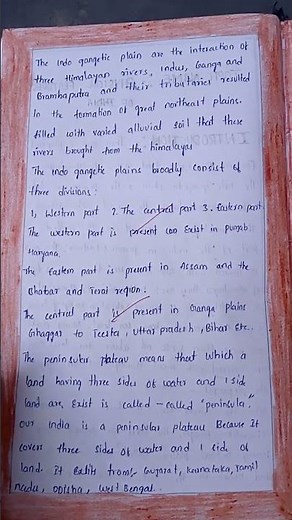 The Indo gangetic plain are the interaction of
three Himalayan rivers, Indus, Ganga and
Bramhaputra and their tributaries resulted
In the formation of great northeast plains.
filled with varied alluvial soil that these
rivers brought from the himalayas
The indo gangetic plains broadly consist of
three divisions:
1, Western part 2. The central part 3. Eastern part
The western part is present (oo) Exist in punjab
Haryana,
The Eastern part is present in Assam and the
Bhabar and Terai region.
The central part is present in Ganga plains
Ghaggar to Teesta, Uttar pradesh, Bihar Etc..
The peninsular plateau means that which a
land having three sides of water and 1 side
land are, Exist is called - called "peninsula."
our India is a peninsular plateau Because It
cover three sides of water and 1 side of
land. It Exists from:- Gujarat, karnataka, Tamil
nadu, odisha, West Bengal..